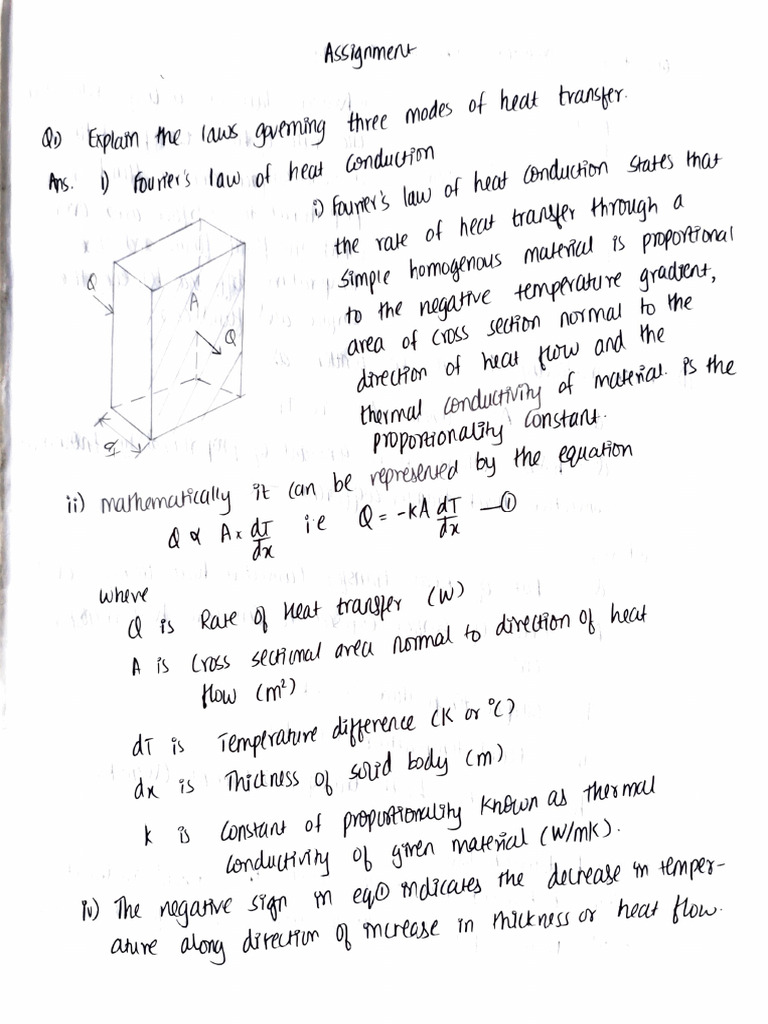 Assignment
Q1) Explain the laws governing three modes of heat transfer.
Ans. 1) Fourier's law of heat conduction
i) Fourier's law of heat conduction states that
the rate of heat transfer through a
simple homogenous material is proportional
to the negative temperature gradient,
area of cross section normal to the
direction of heat flow and the
thermal conductivity of material. is the
proportionality constant.
Q
A
Q
dx
ii) mathematically it can be represented by the equation
Q ∝ A × dT/dx i.e Q = -kA dT/dx —①
where
Q is Rate of Heat transfer (W)
A is Cross sectional area normal to direction of heat
flow (m²)
dT is Temperature difference (K or °C)
dx is Thickness of solid body (m)
k is constant of proportionality known as thermal
conductivity of given material (W/mK).
iv) The negative sign in eq① indicates the decrease in temper-
ature along direction of increase in thickness or heat flow.